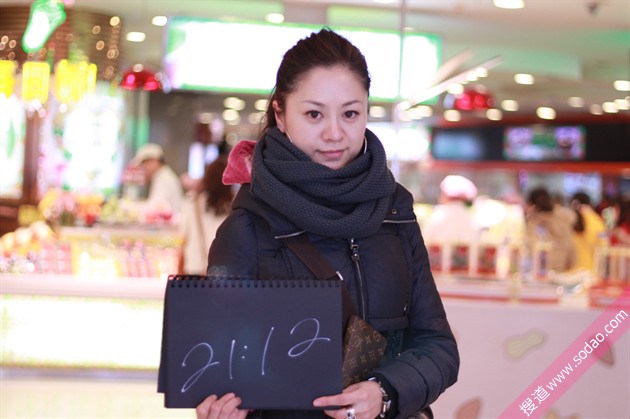 21:12
搜道www.sodao.com